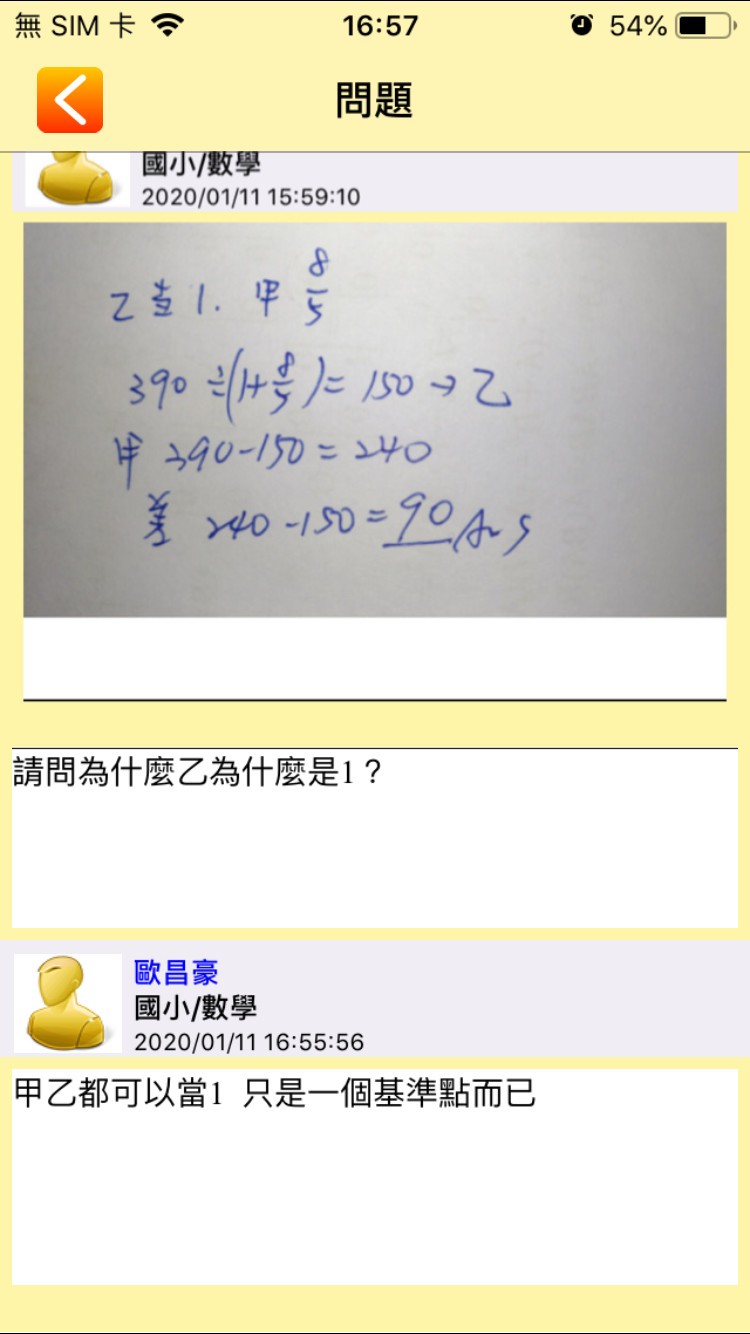 無 SIM 卡 16:57 54%
問題
國小/數學
2020/01/11 15:59:10
乙當1. 甲 8/5
390÷(1+8/5)=150→乙
甲 390-150=240
差 240-150=90 Ans
請問為什麼乙為什麼是1？
歐昌豪
國小/數學
2020/01/11 16:55:56
甲乙都可以當1 只是一個基準點而已